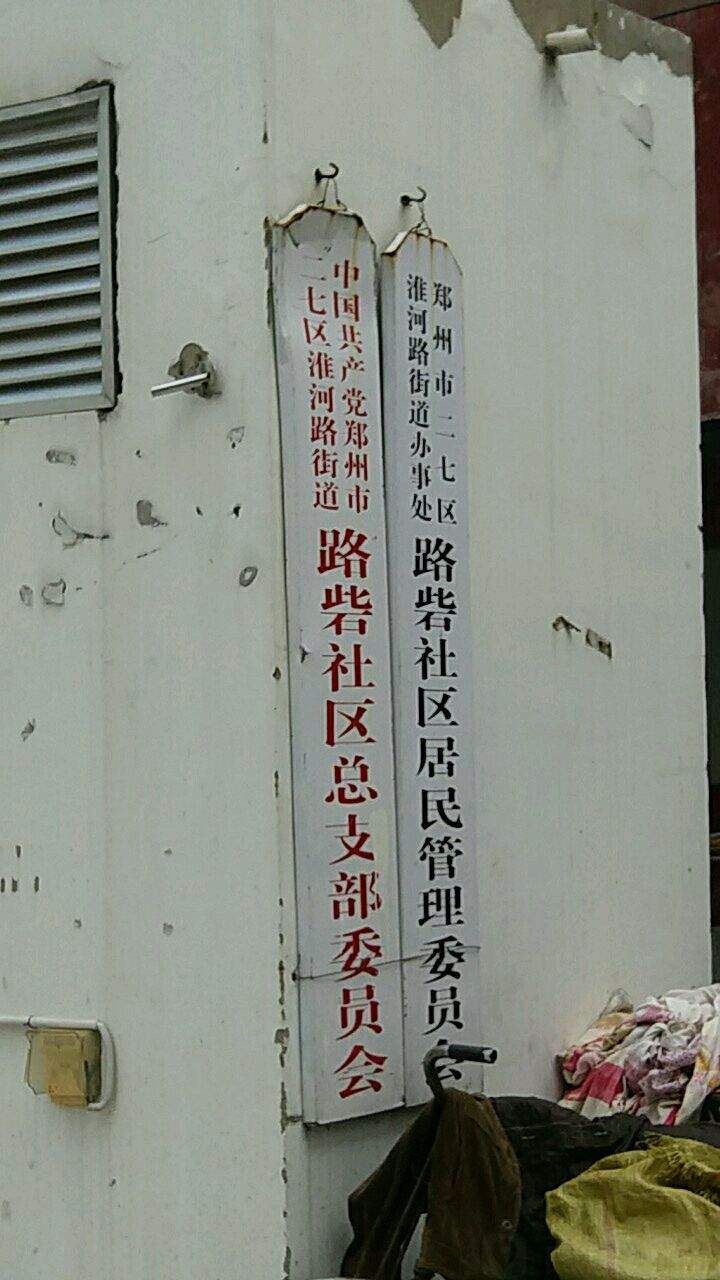 中国共产党郑州市
二七区淮河路街道
路砦社区总支部委员会
郑州市二七区
淮河路街道办事处
路砦社区居民管理委员会